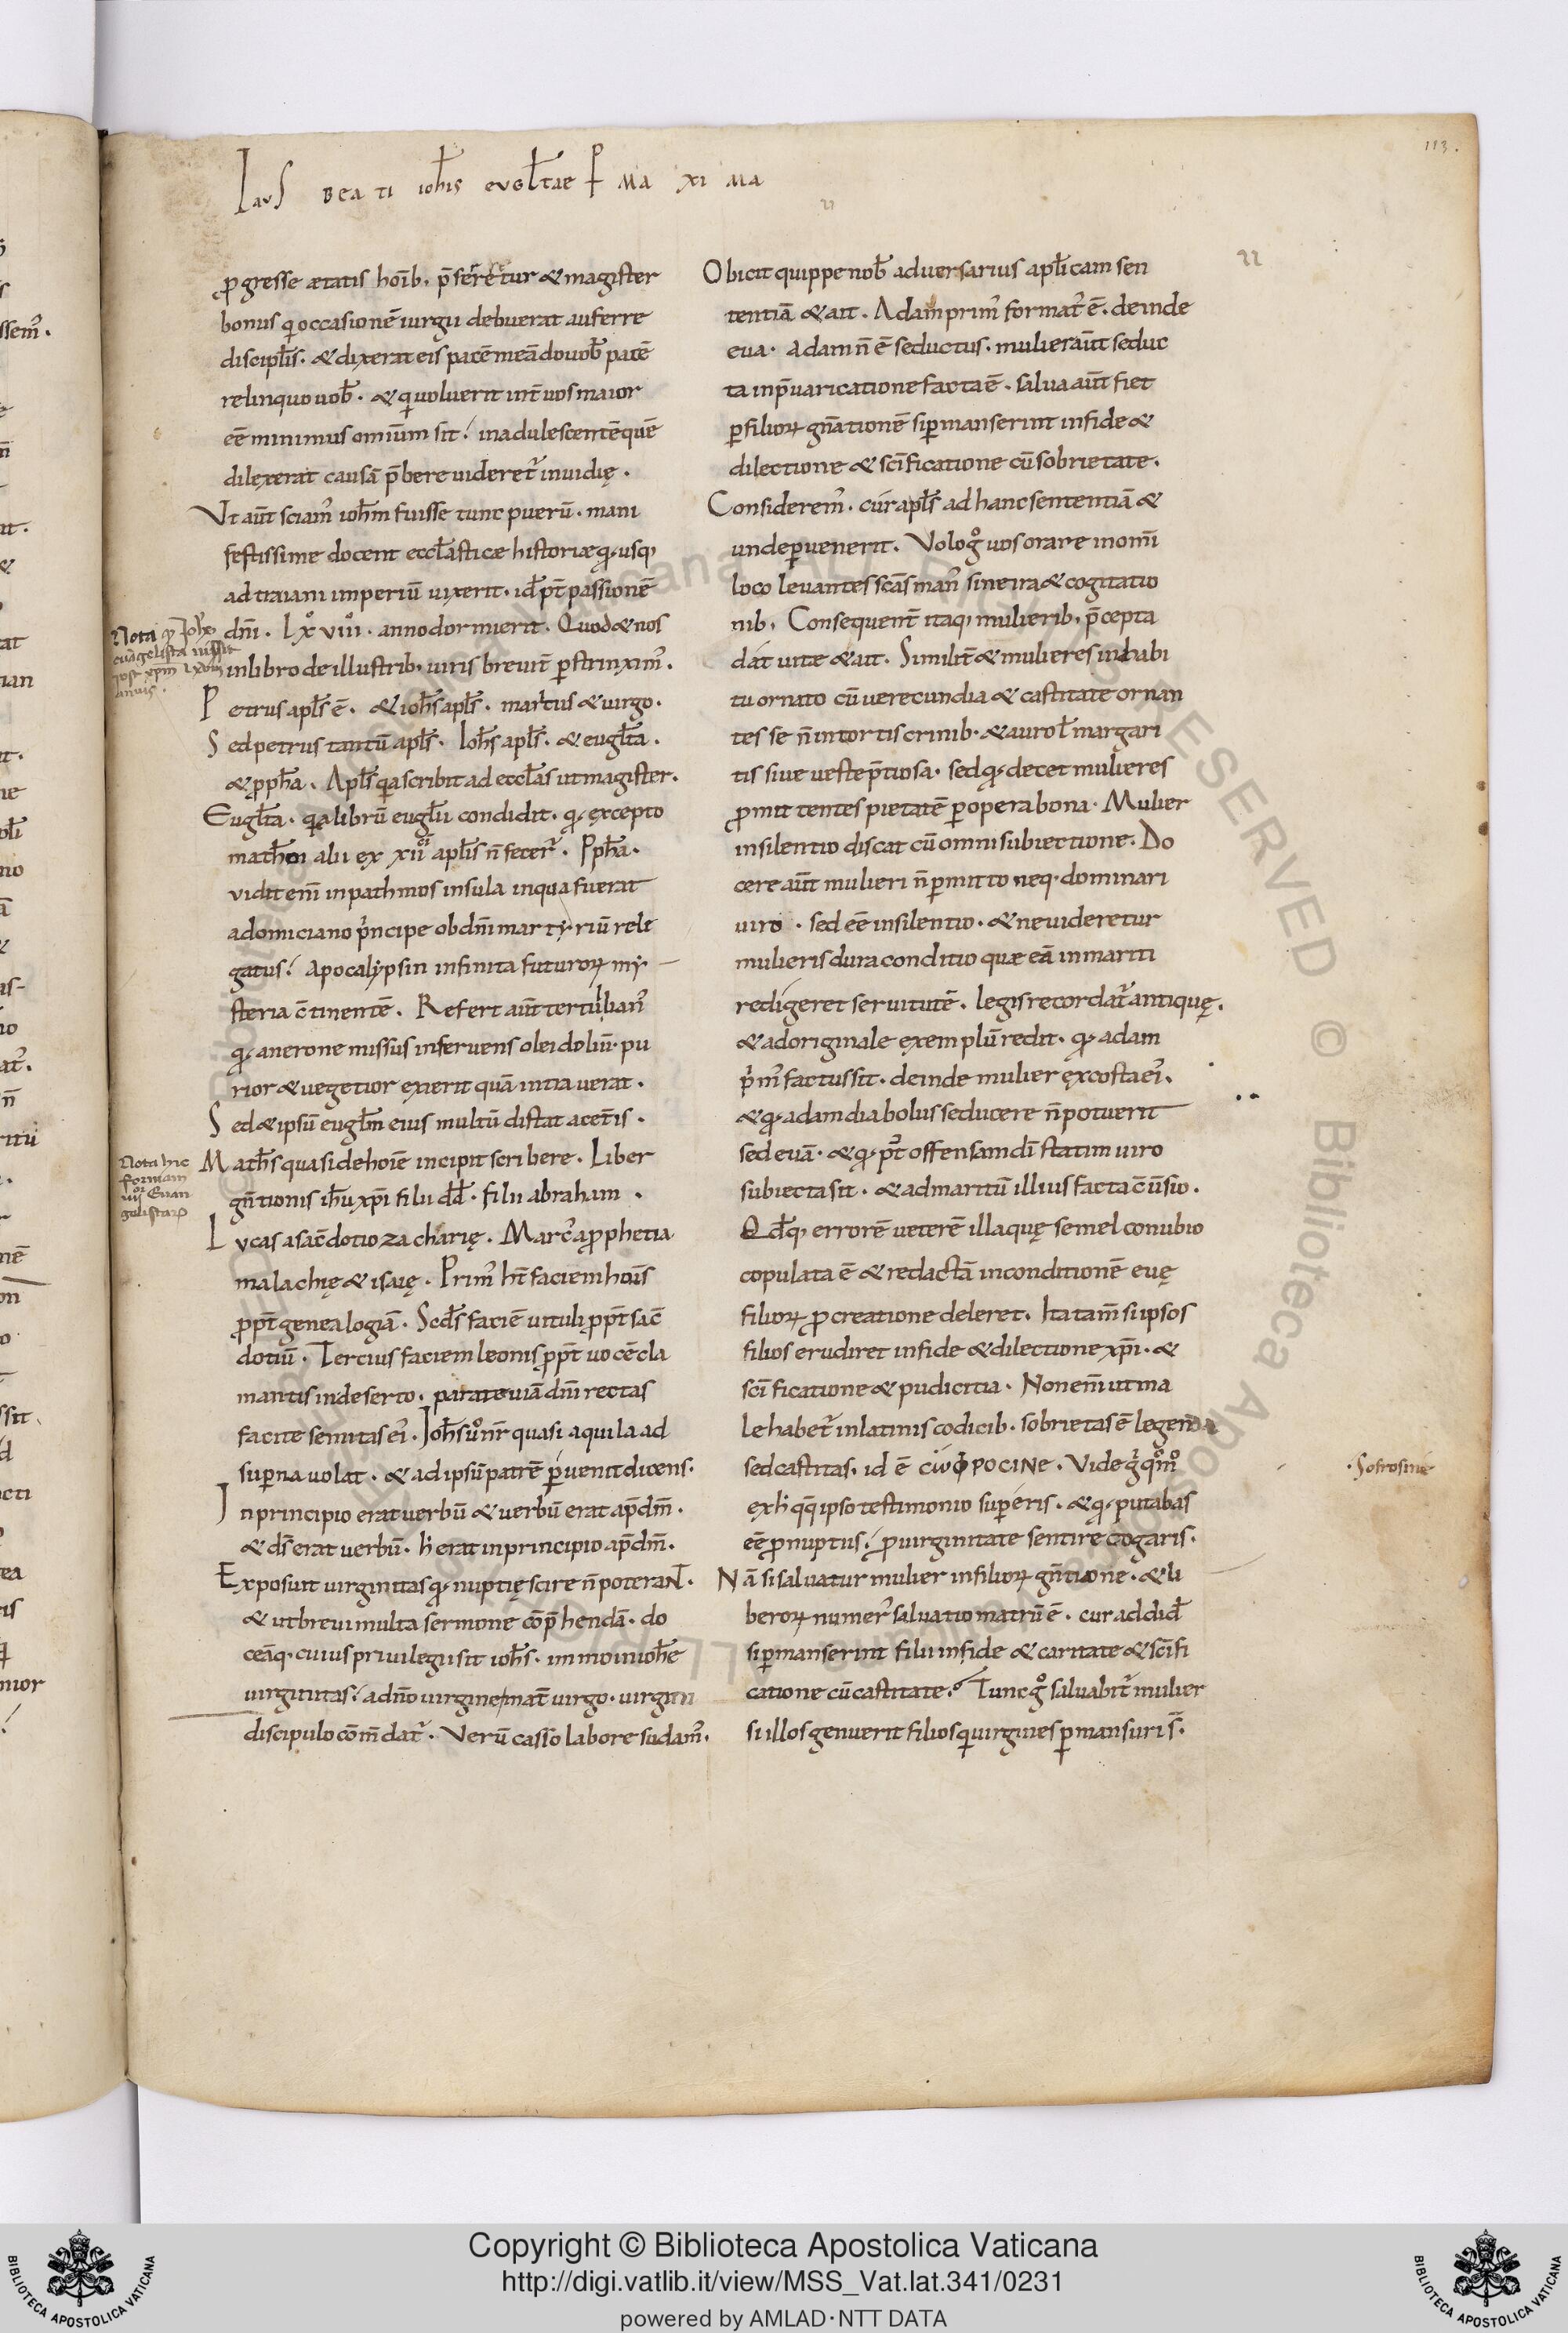 113.
Laus beati ioh̅is evgl̅tae P̅ maxima
22
ꝓgresse ætatis hoīb; p̄ferretur & magister
bonus q̇ occasionē iurgii debuerat auferre
discipl̅is. & dixerat eis pacē meā do uob̅ pacē
relinquo uob̅. & q̇ voluerit int̄ vos maior
eē minimus omīum sit; in adulescentē quē
dilexerat causā p̄bere uideret᷑ inuidię.
Vt aūt sciam᷒ ioh̅m fuisse tunc puerū. mani
festissime docent eccl̅asticæ historiæ qđ usq;
ad traiani imperiū vixerit. id̅ p̄t passionē
dn̄i. Lx viii. anno dormierit. Quod & nos
in libro de illustrib; uiris brevit̄ ꝑstrinxim᷒.
Petrus apl̅s ē. & ioh̅s apl̅s. maritus & uirgo.
Sed petrus tantū apl̅s. Ioh̅s apl̅s. & eugl̅ta.
& ꝓph̅a. Apl̅s q̇a scribit ad eccl̅as ut magister.
Eugl̅ta. q̇a librū eugl̅ii condidit. qđ excepto
math̅eo alii ex xii apl̅is n̄ fecer᷑. Ꝓph̅a.
vidit enī in pathmos insula in qua fuerat
a domiciano p̓ncipe ob dn̄i martyriū rele
gatus; Apocalypsin infinita futuroꝝ my
steria c̄tinentē. Refert aūt tertullian᷒
qđ a nerone missus in feruens olei doliū. pu
rior & vegetior exierit quā intraverat.
Sed & ipsū eugl̅m eius multū distat a cet̄is.
Math̅s quasi de hoīe incipit scribere. Liber
gn̄tionis ih̅u xp̅i filii dd̅. filii abraham.
Lvcas a sac̄dotio zacharię. Marc᷒ a ꝓphetia
malachię & isaię. Prim᷒ h̅t faciem hoīs
ꝓpt̄ genealogiā. Scd̅s faciē vituli ꝓpt̄ sac̄
dotiū. Tercius faciem leonis ꝓpt̄ uocē cla
mantis in deserto. parate viā dn̄i rectas
facite semitas ei᷒. Ioh̅s ů nr̄ quasi aquila ad
sup̄na volat. & ad ipsū patrē p̄uenit dicens.
In principio erat verbū & verbū erat ap̄ dm̄.
& ds̄ erat verbū. h̓ erat in principio ap̄ dm̄.
Exposuit virginitas qđ nuptię scire n̄ poterant.
& ut brevi multa sermone cōp̄hendā. do
ceāq; cuius privilegii sit ioh̅s. immo in ioh̅e
virginitas; a dn̄o virgine mat̄ virgo. virgini
discipulo cōm̄dat᷑. Verū casso labore sudam᷒.
Nota qđ Ioh̅es
evāgelista vixit
post xp̅m lxviii
annis.
Nota hic
formam
iiiior Evan
gelistaꝝ
Obicit quippe nob̅ adversarius apl̅icam sen
tentiā & ait. Adam prim᷒ format᷒ ē. deinde
eva. Adam n̄ ē seductus. mulier aūt seduc
ta in p̄varicatione facta ē. salva aūt fiet
ꝑ filioꝝ gn̄ationē si ꝑmanserint in fide &
dilectione & sc̄ificatione cū sobrietate.
Considerem᷒. cur apl̅s ad hanc sententiā &
unde ꝑvenerit. Volo g̊ vos orare in om̄i
loco levantes sc̄as man᷒ sine ira & cogitatio
nib; Consequent̄ itaq; mulierib; p̄cepta
dat vite & ait. Similit̄ & mulieres in habi
tu ornato cū verecundia & castitate ornan
tes se n̄ in tortis crinib; & auro l̅ margari
tis sive veste p̄tiosa. sed qđ decet mulieres
ꝓmittentes pietatē ꝑ opera bona. Mulier
in silentio discat cū omni subiectione. Do
cere aūt mulieri n̄ ꝑmitto neq; dominari
viro. sed eē in silentio. & ne videretur
mulieris dura conditio quæ eā in mariti
redigeret servitutē. legis recordat᷑ antiquę.
& ad originale exemplū redit. qđ adam
p̓m᷒ factus sit. deinde mulier ex costa ei᷒.
& qđ adam diabolus seducere n̄ potuerit
sed evā. & qđ p᷒t offensam dī statim viro
subiecta sit. & ad maritū illius facta c̄ūsio.
Qd̅q; errorē veterē illa quę semel conubio
copulata ē & redacta in conditionē evę
filioꝝ ꝓcreatione deleret. Ita tam̄ si ipsos
filios erudiret in fide & dilectione xp̅i. &
sc̄ificatione & pudicitia. Non enī ut ma
le habet᷑ in latinis codicib; sobrietas ē legenda
sed castitas. id ē CѠΦPOCINE. Vide g̊ q̊m̊
ex h̓ q̇q; ipso testimonio superis. & qđ putabas
eē ꝓ nuptiis; ꝓ virginitate sentire cogaris.
Nā si salvatur mulier in filioꝝ gn̄tione. & li
beroꝝ numer᷒ salvatio matrū ē. cur addid̅
si ꝑmanserint filii in fide & caritate & sc̄ifi
catione cū castitate? Tunc g̊ salvabit᷑ mulier
si illos genuerit filios q̇ virgines ꝑmansuri s̄.
22
. Sofrosine
Copyright © Biblioteca Apostolica Vaticana
http://digi.vatlib.it/view/MSS_Vat.lat.341/0231
powered by AMLAD·NTT DATA
BIBLIOTECA APOSTOLICA VATICANA
BIBLIOTECA APOSTOLICA VATICANA